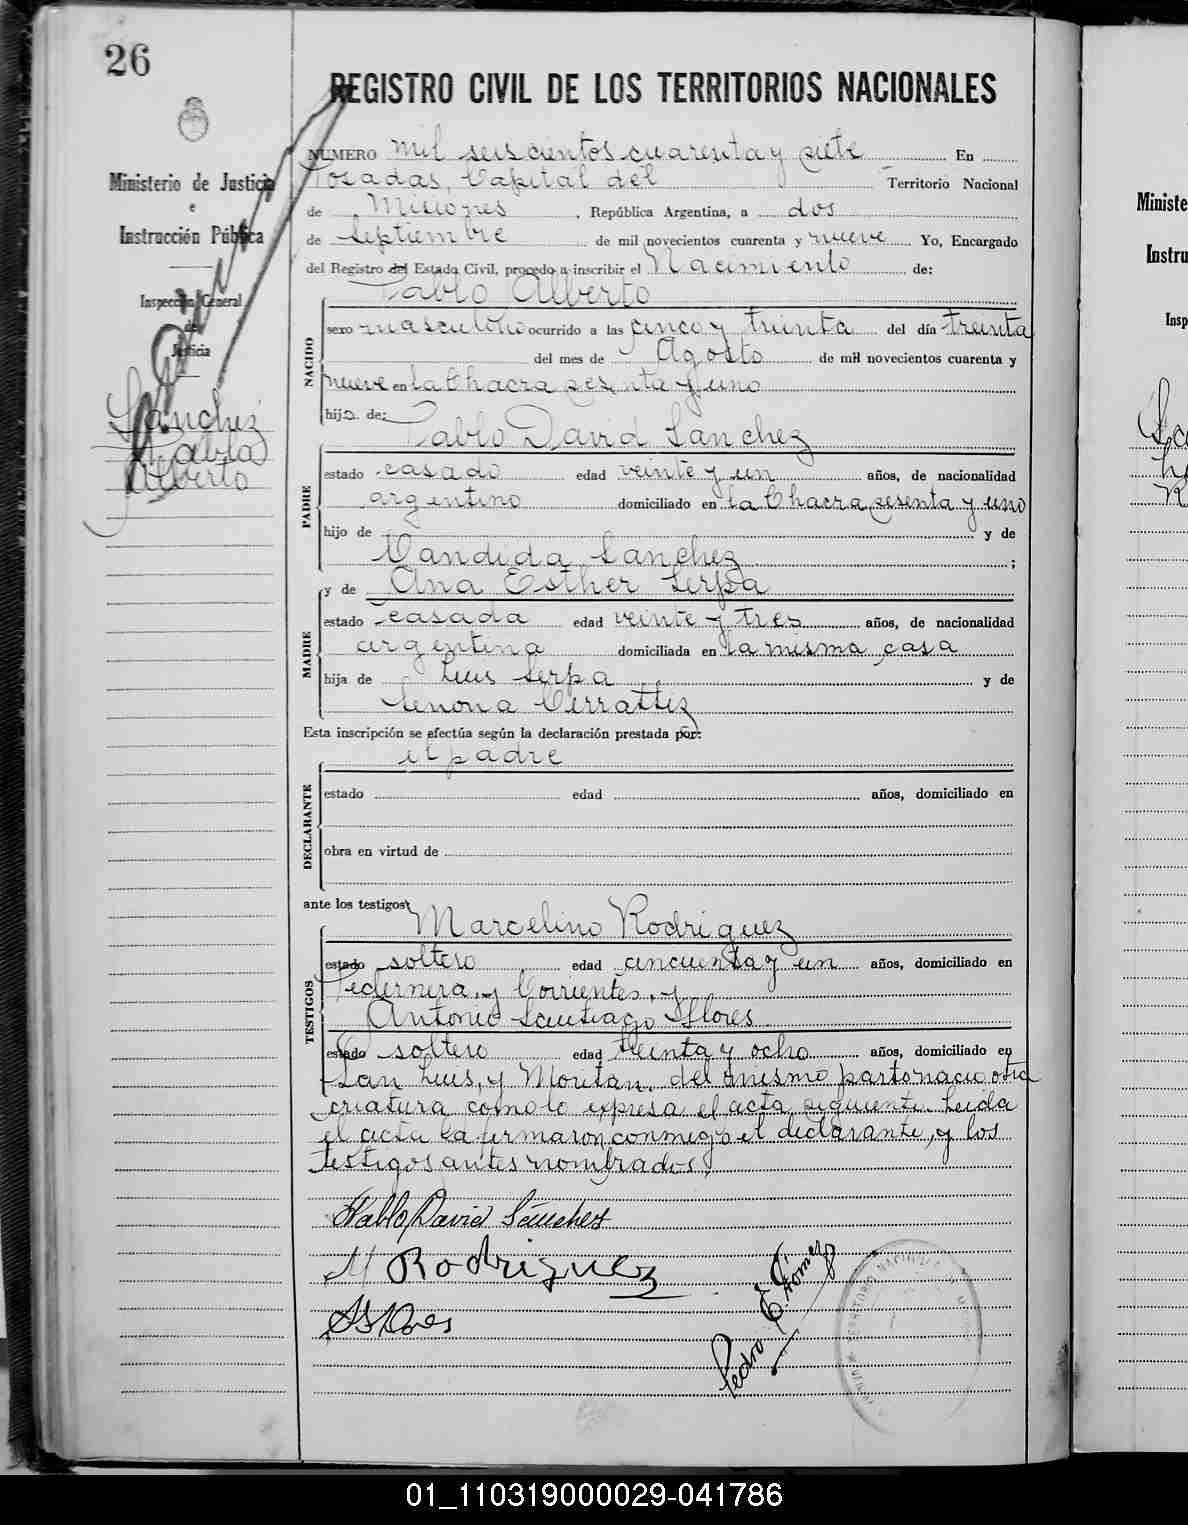 26
REGISTRO CIVIL DE LOS TERRITORIOS NACIONALES
Ministerio de Justicia
e
Instrucción Pública
Inspección General
de
Justicia
Sanchez
Pablo
Alberto
NUMERO mil seiscientos cuarenta y siete En
Posadas, Capital del Territorio Nacional
de Misiones, República Argentina, a dos
de septiembre de mil novecientos cuarenta y nueve Yo, Encargado
del Registro del Estado Civil, procedo a inscribir el Nacimiento de:
Pablo Alberto
NACIDO
sexo masculino ocurrido a las cinco y treinta del día treinta
del mes de Agosto de mil novecientos cuarenta y
nueve en la Chacra sesenta y uno
hijo de:
Pablo David Sanchez
PADRE
estado casado edad veinte y un años, de nacionalidad
argentino domiciliado en la Chacra sesenta y uno
hijo de y de
Candida Sanchez ;
y de Ana Esther Serpa
MADRE
estado casada edad veinte y tres años, de nacionalidad
argentina domiciliada en la misma casa
hija de Luis Serpa y de
Senona
Esta inscripción se efectúa según la declaración prestada por:
el padre
DECLARANTE
estado edad años, domiciliado en
obra en virtud de
ante los testigos
Marcelino Rodriguez
TESTIGOS
estado soltero edad cincuenta y un años, domiciliado en
Pedernera, y Corrientes, y
Antonio Santiago Flores
estado soltero edad treinta y ocho años, domiciliado en
San Luis, y Moritan. del mismo parto nacio otra
criatura como lo expresa el acta siguiente. Leida
el acta la firmaron conmigo el declarante, y los
testigos antes nombrados.
Pablo David Sanchez
M Rodriguez
Pedro E. Gómez
Ministe
Instru
Insp
01_110319000029-041786